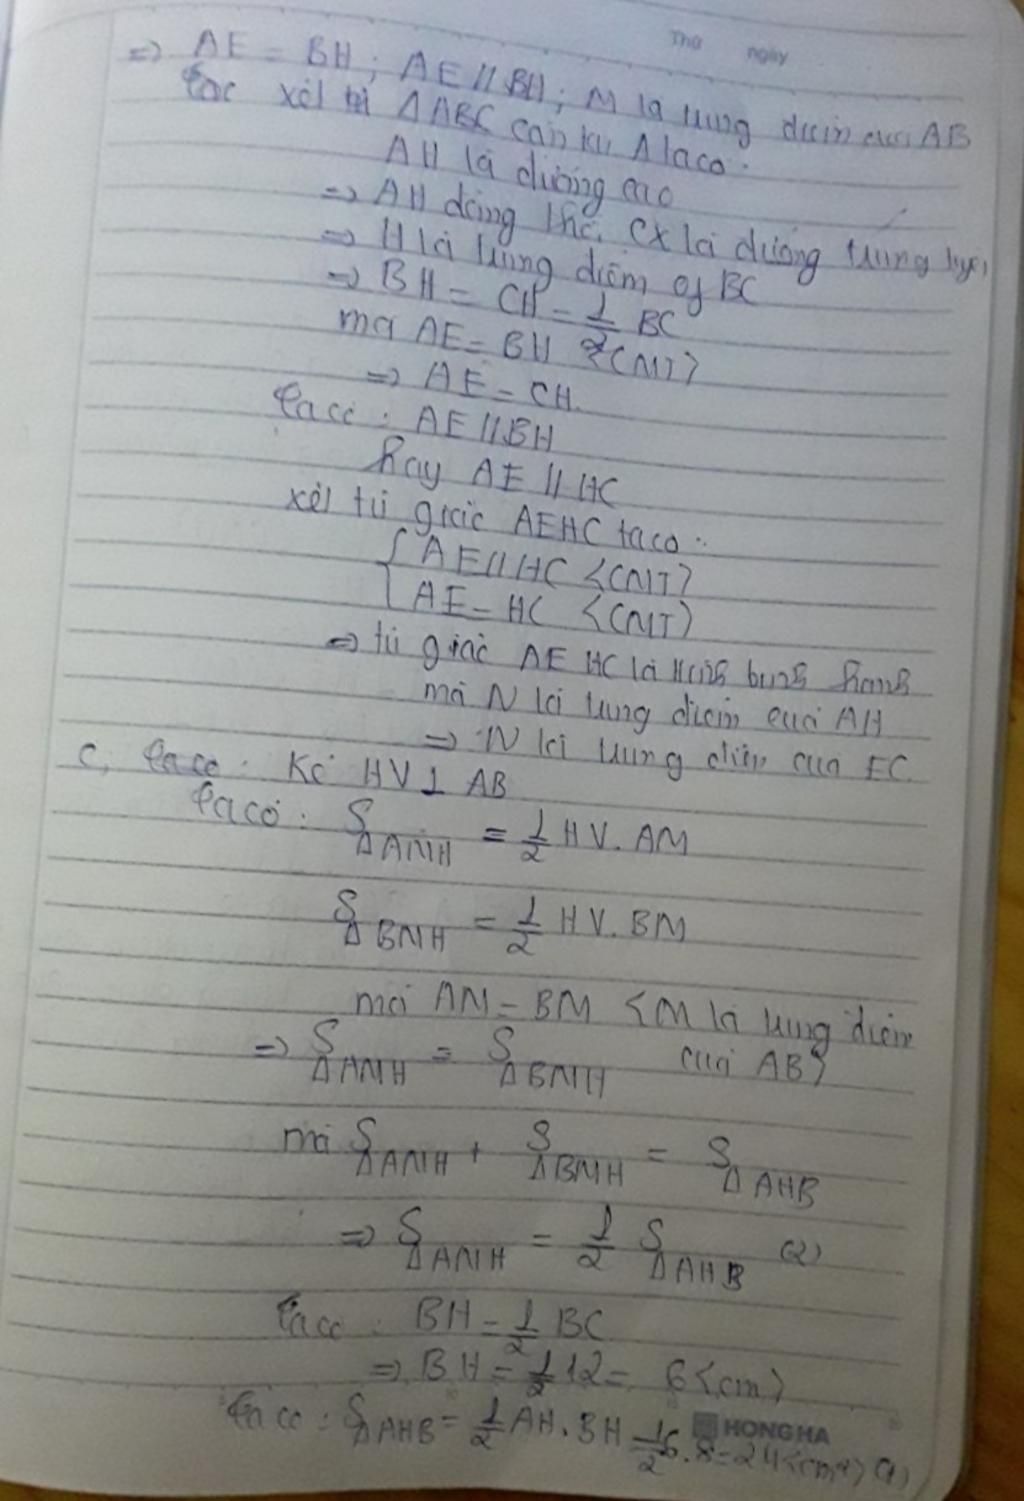 Thứ ngày
=> AE = BH ; AE // BH ; M là trung điểm của AB
xét ΔABC cân tại A ta có :
AH là đường cao
=> AH đồng thời là đường trung tuyến
=> H là trung điểm of BC
=> BH = CH = 1/2 BC
mà AE = BH (CMT)
=> AE = CH
Ta có : AE // BH
hay AE // HC
xét tứ giác AEHC ta có :
{ AE // HC (CMT)
AE = HC (CMT)
=> tứ giác AEHC là hình bình hành
mà N là trung điểm của AH
=> N là trung điểm của EC
c, Ta có : Kẻ HV ⊥ AB
Ta có : SΔAMH = 1/2 HV. AM
SΔBMH = 1/2 HV. BM
mà AM = BM (M là trung điểm
của AB)
=> SΔAMH = SΔBMH
mà SΔAMH + SΔBMH = SΔAHB
=> SΔAMH = 1/2 SΔAHB (2)
Ta có : BH = 1/2 BC
=> BH = 1/2 12 = 6 (cm)
HONG HA
Ta có : SΔAHB = 1/2 AH. BH = 1/2 6. 8 = 24 (cm²) (1)